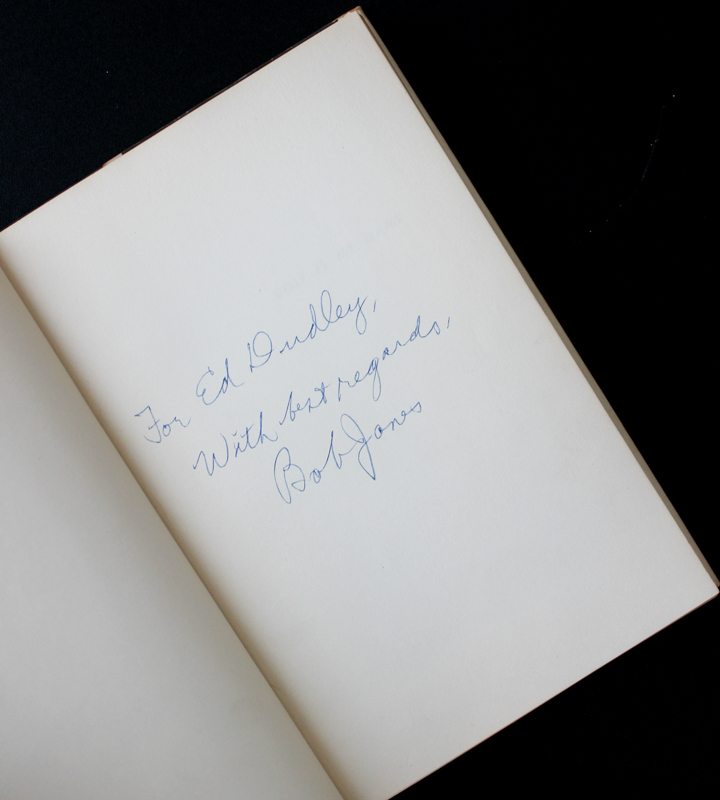 For Ed Dudley,
With best regards,
Bob Jones